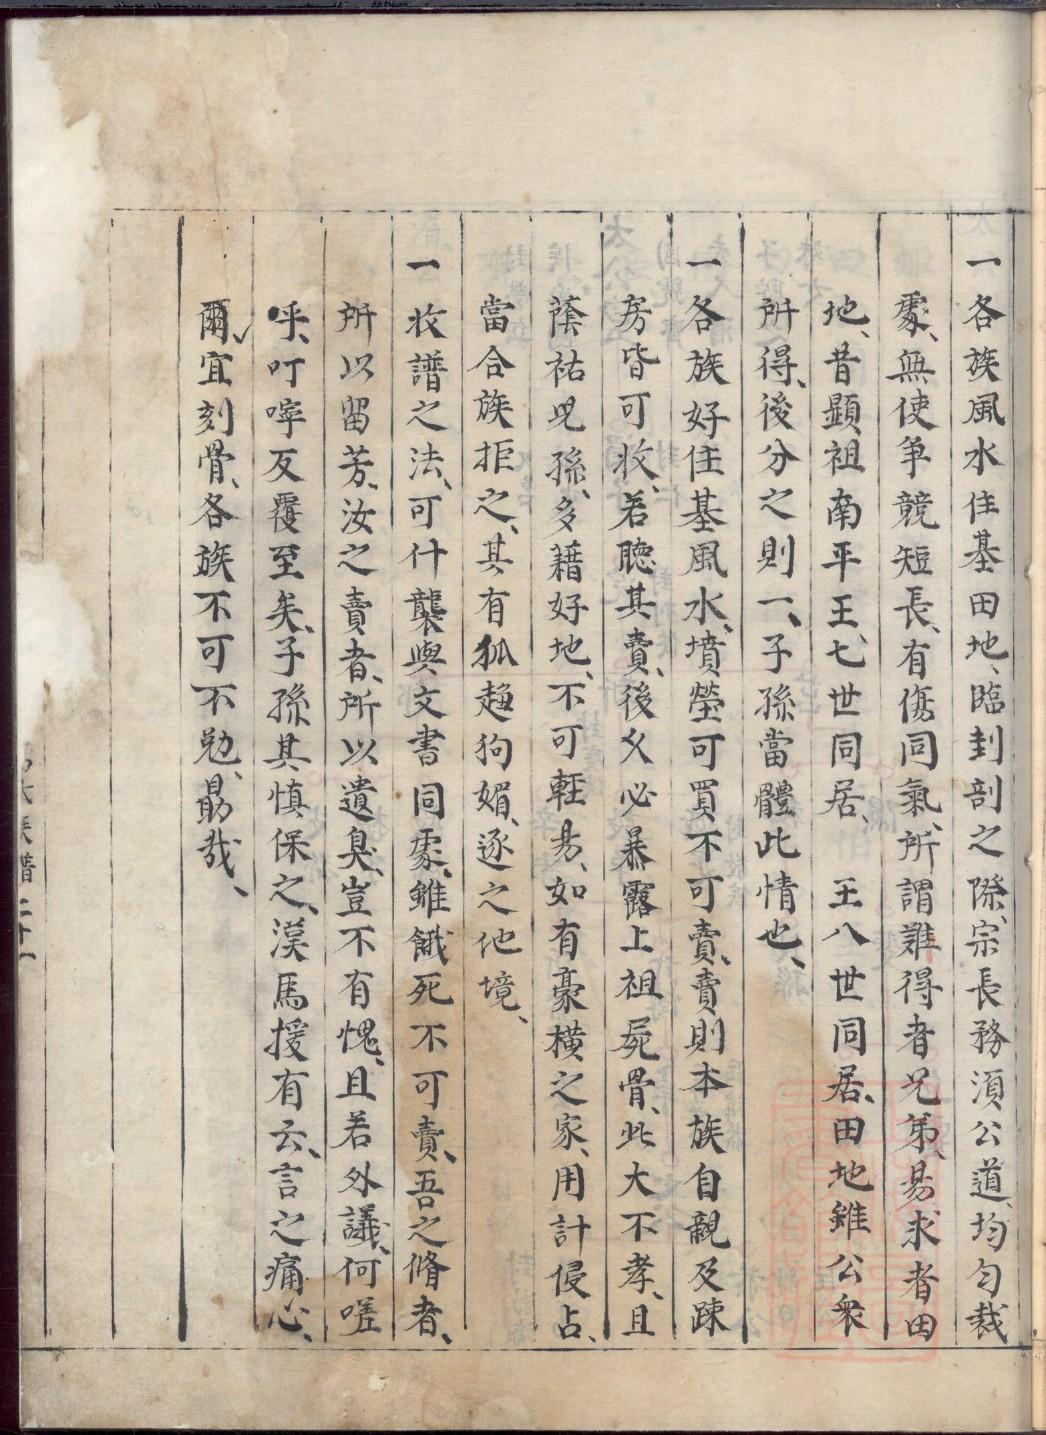 一各族風水住基田地、臨封剖之際、宗長務須公道、均匀裁
處、無使争競短長、有傷同氣、所謂難得者兄弟、易求者田
地、昔顯祖南平王、七世同居、 王八世同居、田地雖公衆
所得、後分之則一、子孫當體此情也、
一各族好住基風水、墳塋可買不可賣、賣則本族自親及踈
房皆可收、若聽其賣、後乂必暴露上祖屍骨、此大不孝、且
蔭祐児孫、多藉好地、不可輕易、如有豪横之家、用計侵占、
當合族拒之、其有狐趨狗媚、逐之他境、
一收譜之法、可什襲與文書同處、雖餓死不可賣、吾之脩者、
所以留芳、汝之賣者、所以遺臭、豈不有愧、且若外議、何嗟
呼、叮嚀反覆至矣、子孫其慎保之、漢馬援有云、言之痛心、
爾、宜刻骨、各族不可不勉、勗哉、
族譜二十一